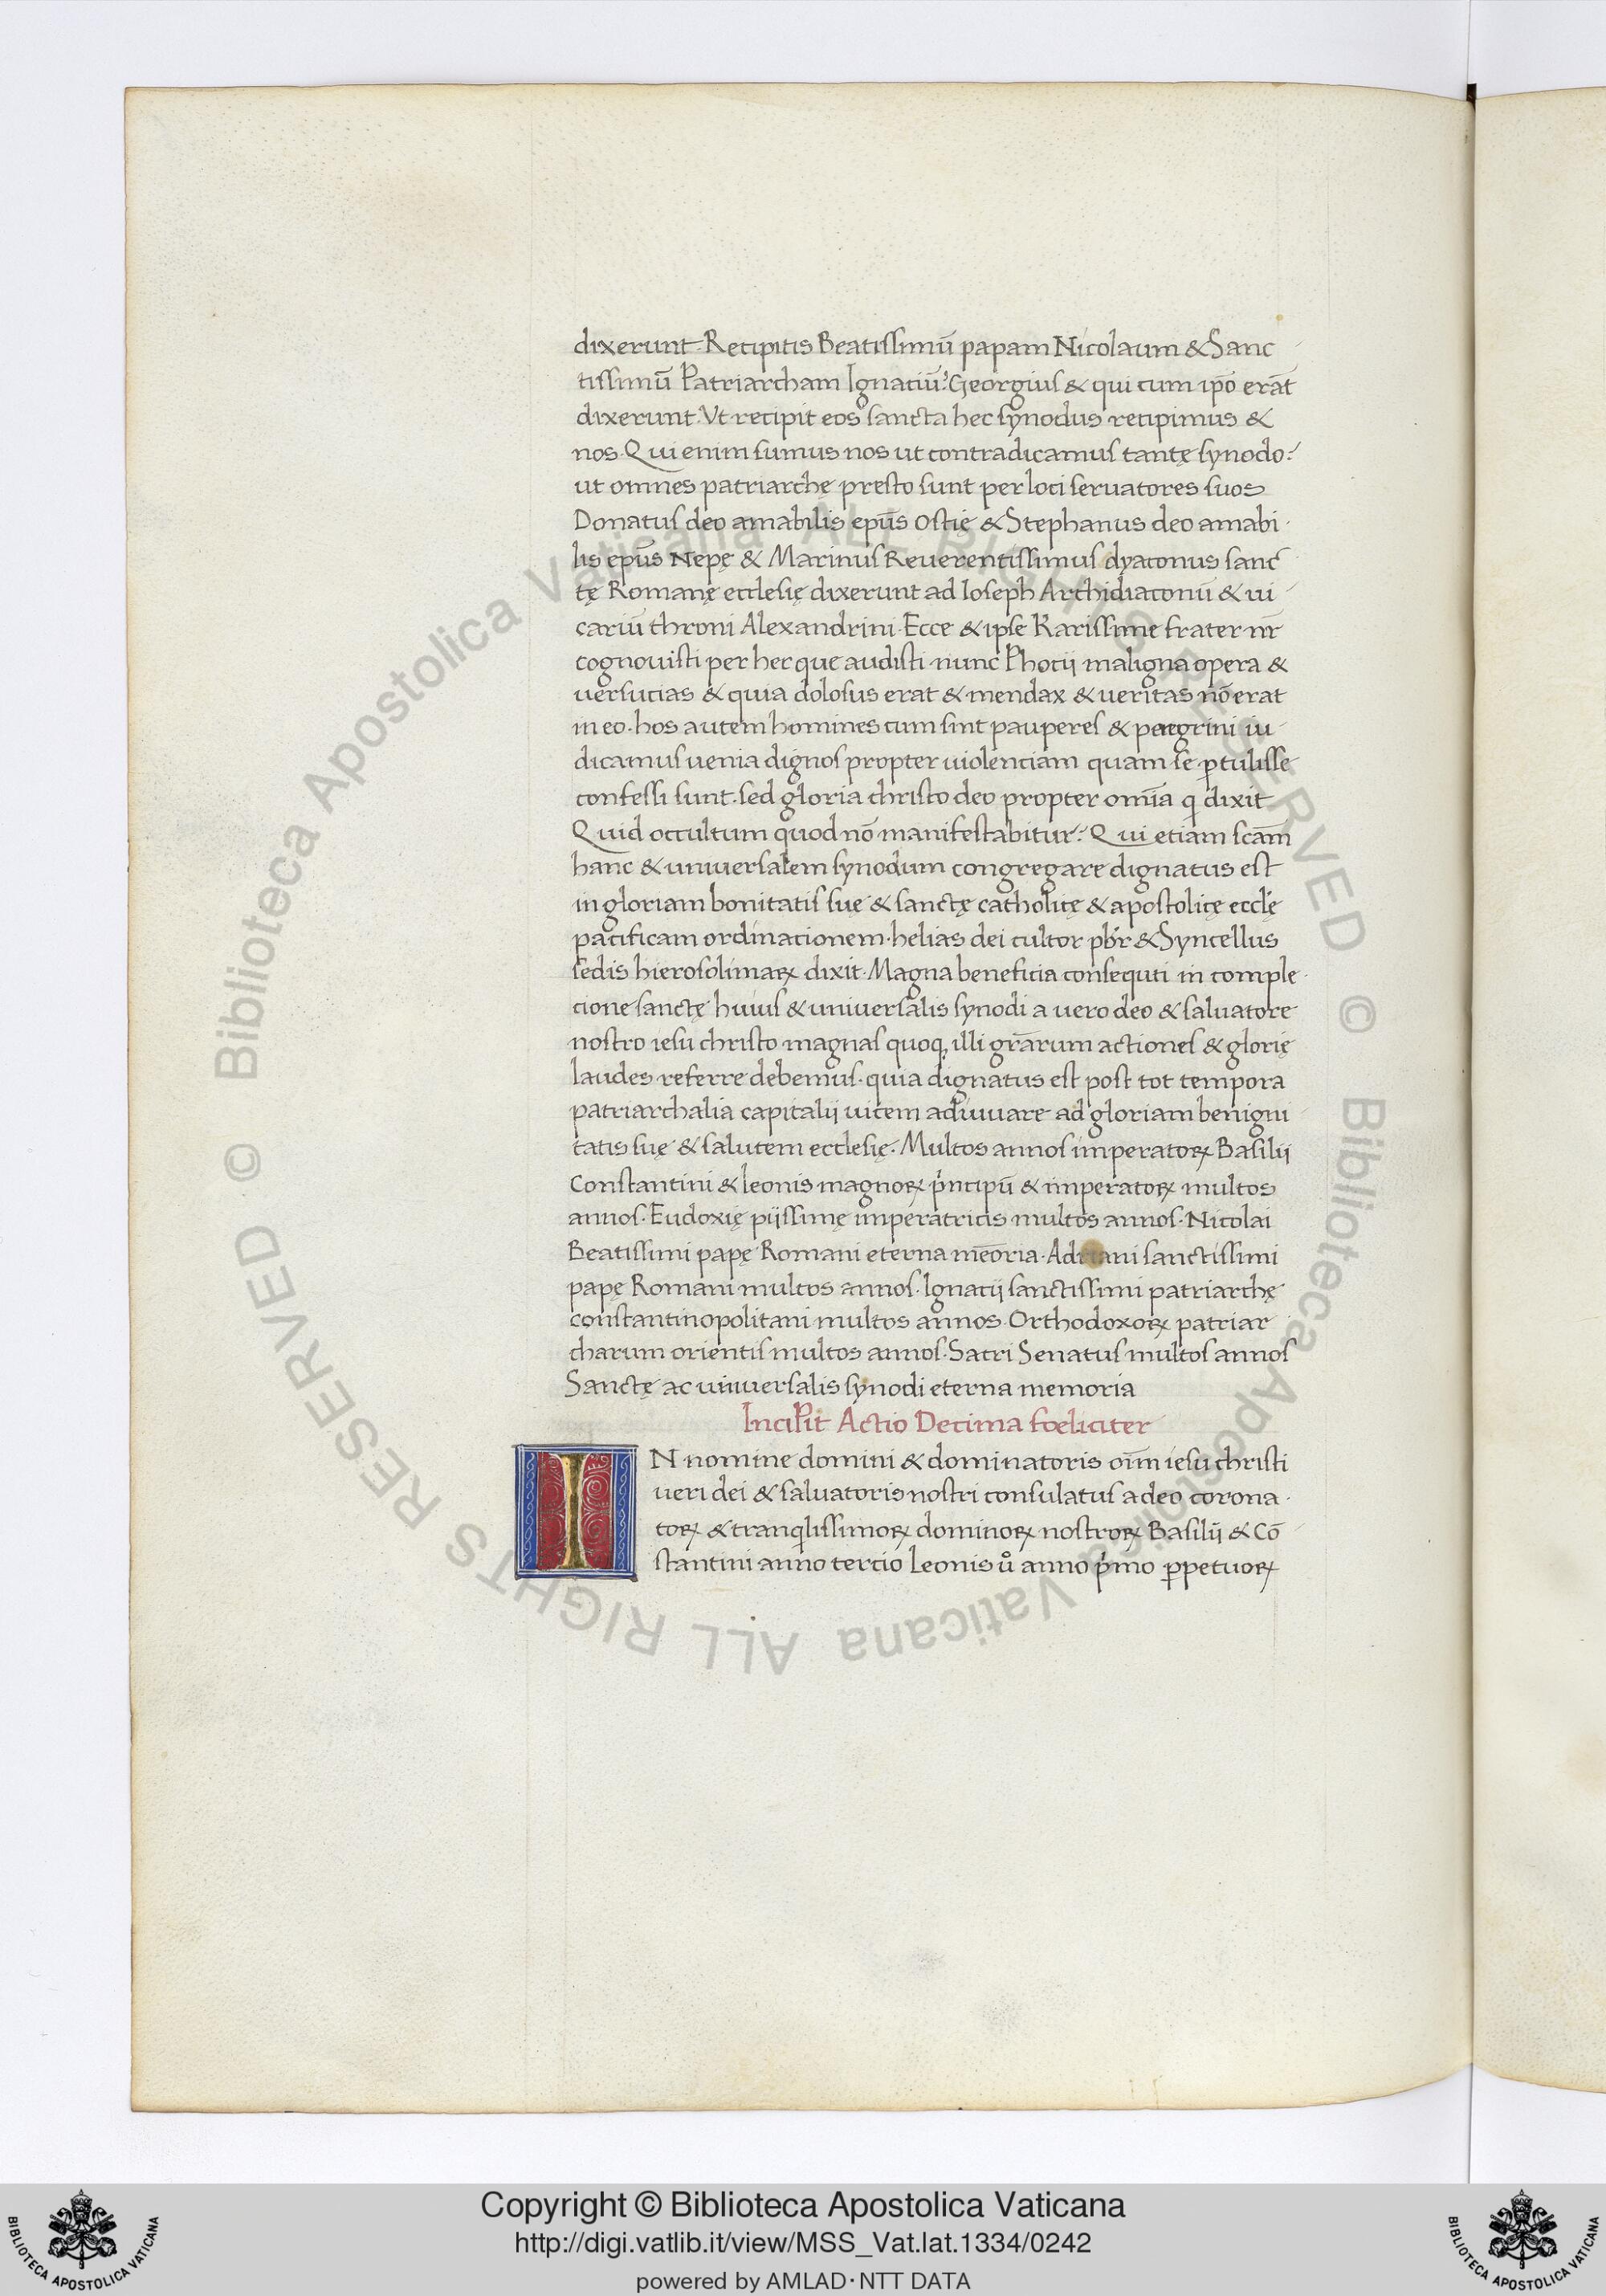 dixerunt. Recipitis Beatissimū papam Nicolaum & Sanc
tissimū Patriarcham Ignatiū? Georgius & qui cum ip̄o erāt
dixerunt. Ut recipit eos sancta hec synodus recipimus &
nos. Qui enim sumus nos ut contradicamus tantę synodo?
ut omnes patriarchę presto sunt per loci seruatores suos
Donatus deo amabilis ep̄us Ostię & Stephanus deo amabi
lis ep̄us Nepę & Marinus Reuerentissimus dyaconus sanc
tę Romanę ecclesię dixerunt ad Ioseph Archidiaconū & ui
cariū throni Alexandrini. Ecce & ipse Karissime frater nr̄
cognouisti per hec que audisti nunc Photij maligna opera &
uersucias & quia dolosus erat & mendax & ueritas nō erat
in eo. hos autem homines cum sint pauperes & peregrini iu
dicamus uenia dignos propter uiolenciam quam se ꝑtulisse
confessi sunt. sed gloria christo deo propter om̄ia q dixit
Quid occultum quod nō manifestabitur? Qui etiam scām
hanc & uniuersalem synodum congregare dignatus est
in gloriam bonitatis suę & sanctę catholicę & apostolicę ecclę
pacificam ordinacionem. helias dei cultor pb̄r & Syncellus
sedis hierosolimaꝝ dixit. Magna beneficia consequti in comple
cione sanctę huius & uniuersalis synodi a uero deo & saluatore
nostro iesu christo magnas quoq, illi gr̄arum actiones & glorię
laudes referre debemus. quia dignatus est post tot tempora
patriarchalia capitalij uicem adiuuare ad gloriam benigni
tatis suę & salutem ecclesię. Multos annos imperatoꝝ Basilij
Constantini & leonis magnoꝝ p̍ncipū & imperatoꝝ multos
annos. Eudoxię pijssimę imperatricis multos annos. Nicolai
Beatissimi papę Romani eterna mēoria. Adriani sanctissimi
papę Romani multos annos. Ignatij sanctissimi patriarchę
constantinopolitani multos annos. Orthodoxoꝝ patriar
charum orientis multos annos. Sacri Senatus multos annos
Sanctę ac uniuersalis synodi eterna memoria
InciPit Actio Decima fœliciter
IN nomine domini & dominatoris oīm iesu christi
ueri dei & saluatoris nostri consulatus a deo corona
toꝝ & tranqlissimoꝝ dominoꝝ nostroꝝ Basilij & Cō
stantini anno tercio Leonis uº anno p̍mo ꝑpetuoꝝ
© Biblioteca Apostolica Vaticana ALL RIGHTS RESERVED © Biblioteca Apostolica Vaticana ALL RIGHTS RESERVED
Copyright © Biblioteca Apostolica Vaticana
http://digi.vatlib.it/view/MSS_Vat.lat.1334/0242
powered by AMLAD·NTT DATA
BIBLIOTECA APOSTOLICA VATICANA
BIBLIOTECA APOSTOLICA VATICANA